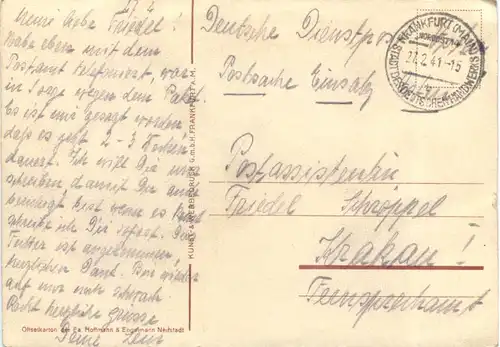 27.2.41
Meine liebe Friedel!
Habe eben mit dem
Postamt telefoniert, war
in Sorge wegen dem Paket.
Es ist mir gesagt worden
daß es jetzt 2-3 Wochen
dauert. Ich will Dir nur
schreiben damit Du auch
beruhigt bist wenn es
schreibe ich Dir sofort. Das
ist angekommen
herzlichen Dank. Bis wieder
auf nur noch
Recht herzliche Grüsse
Deine
Offsetkarton der Fa. Hoffmann & Engelmann Neustadt
KUNST- & WERBEDRUCK G.m.b.H. FRANKFURT A.M.
Deutsche Dienstpost
Postsache Einsatz
FRANKFURT (MAIN)
27.2.41.-15
STADT DES DEUTSCHEN HANDWERKS
Postassistentin
Friedel Schröppel
Krakau!
Fernsprechamt